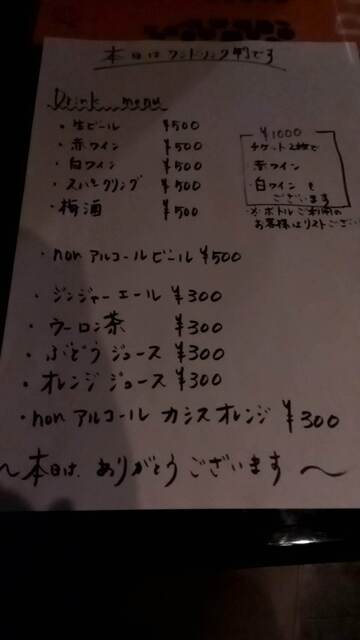 本日はワンドリンク制です
Drink menu
・生ビール ¥500
・赤ワイン ¥500
・白ワイン ¥500
・スパークリング ¥500
・梅酒 ¥500
¥1000
チケット2枚で
・赤ワイン
・白ワイン も
ございます
※ボトルご利用の
お客様はリストござい
・non アルコールビール ¥500
・ジンジャーエール ¥300
・ウーロン茶 ¥300
・ぶどうジュース ¥300
・オレンジジュース ¥300
・non アルコール カシスオレンジ ¥300
〜本日は、ありがとうございます〜